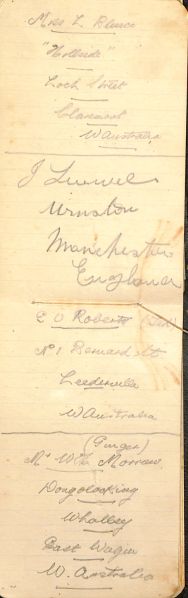 Miss L
"Hillside"
Loch Street
Claremont
W Australia
J
Urmston
Manchester
England
E O Roberts
No 1 Bernard St
Leederville
W Australia
(Ginger)
Mr Wm Morrow
Dongolocking
Whalley
East Wagin
W. Australia